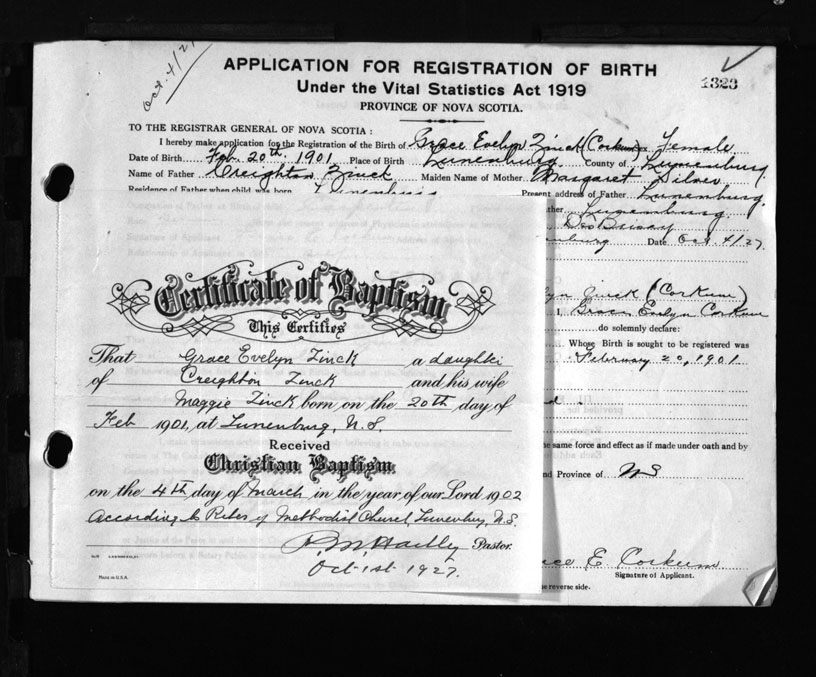 Oct 4/27
APPLICATION FOR REGISTRATION OF BIRTH
1323
Under the Vital Statistics Act 1919
PROVINCE OF NOVA SCOTIA.
TO THE REGISTRAR GENERAL OF NOVA SCOTIA :
I hereby make application for the Registration of the Birth of Grace Evelyn Zinck (Corkum) Sex Female
Date of Birth Feb. 20th. 1901 Place of Birth Lunenburg County of Lunenburg
Name of Father Creighton Zinck Maiden Name of Mother Margaret Silver
Residence of Father when child was born Lunenburg Present address of Father Lunenburg
Lunenburg
Date Oct 4/27
Zinck (Corkum)
I, Grace Evelyn Corkum
do solemnly declare:
Whose Birth is sought to be registered was
February 20, 1901
the same force and effect as if made under oath and by
and Province of NS
Grace E Corkum
Signature of Applicant.
reverse side.
Certificate of Baptism
This Certifies
That Grace Evelyn Zinck a daughter
of Creighton Zinck and his wife
Maggie Zinck born on the 20th day of
Feb 1901, at Lunenburg, N.S.
Received
Christian Baptism
on the 4th day of March in the year of our Lord 1902
According to Rites of Methodist Church, Lunenburg, N.S.
Pastor.
Oct 1st 1927.
Made in U.S.A.